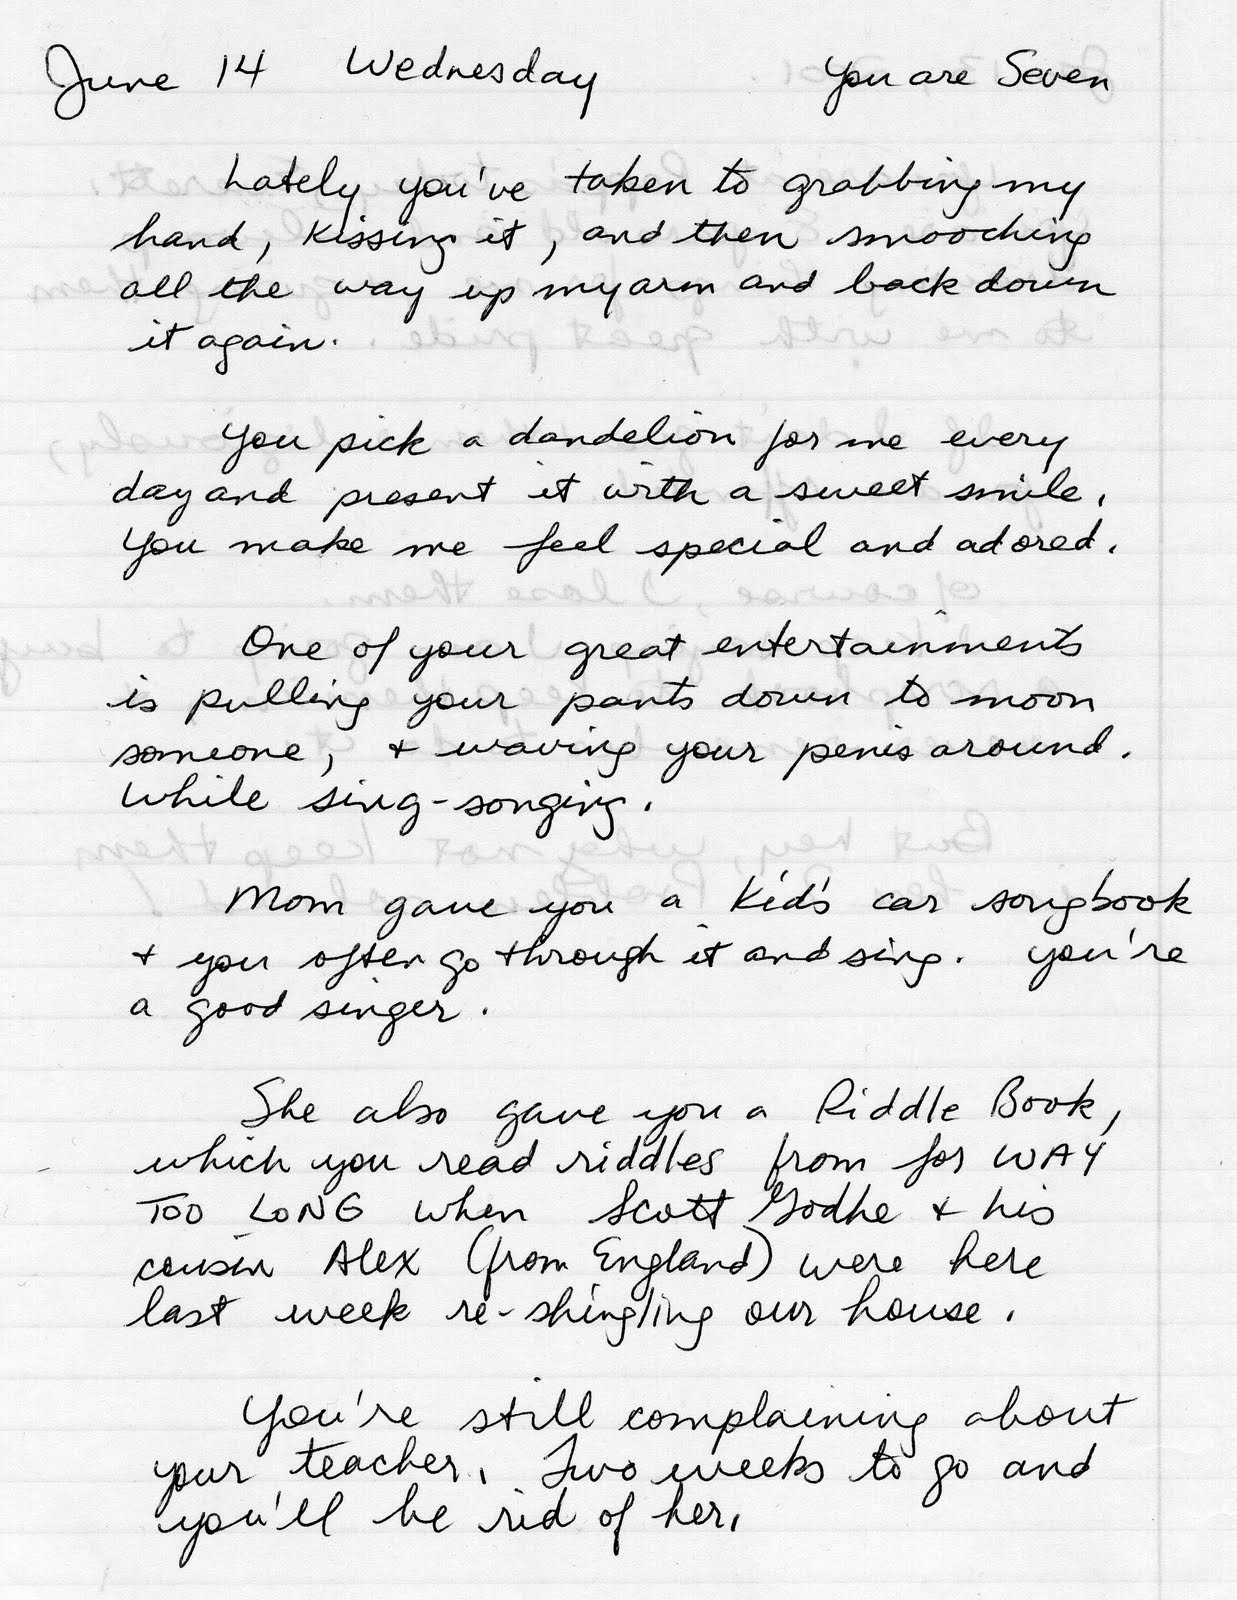 June 14 Wednesday You are Seven
Lately you've taken to grabbing my
hand, kissing it, and then smooching
all the way up my arm and back down
it again.
You pick a dandelion for me every
day and present it with a sweet smile.
You make me feel special and adored.
One of your great entertainments
is pulling your pants down to moon
someone, + waving your penis around.
While sing-songing.
Mom gave you a Kid's car songbook
+ you often go through it and sing. You're
a good singer.
She also gave you a Riddle Book,
which you read riddles from for WAY
TOO LONG when Scott Godhe + his
cousin Alex (from England) were here
last week re-shingling our house.
You're still complaining about
your teacher. Two weeks to go and
you'll be rid of her.